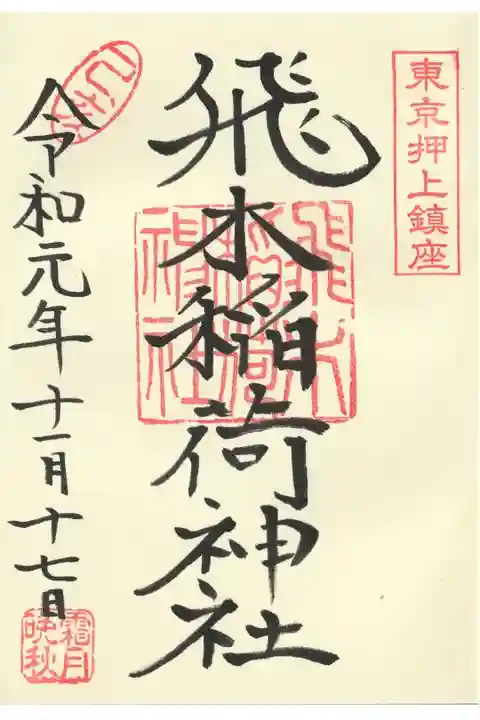 東京押上鎮座
飛木稲荷神社
飛木稲荷神社
令和元年十一月十七日
霜月
晩秋